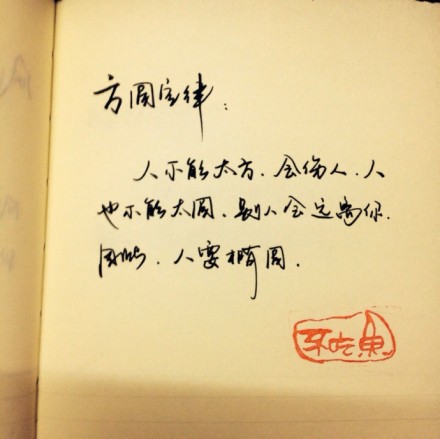 方圆定律：
人不能太方、会伤人、人
也不能太圆、别人会远离你.
因此、人要椭圆.
不吃鱼